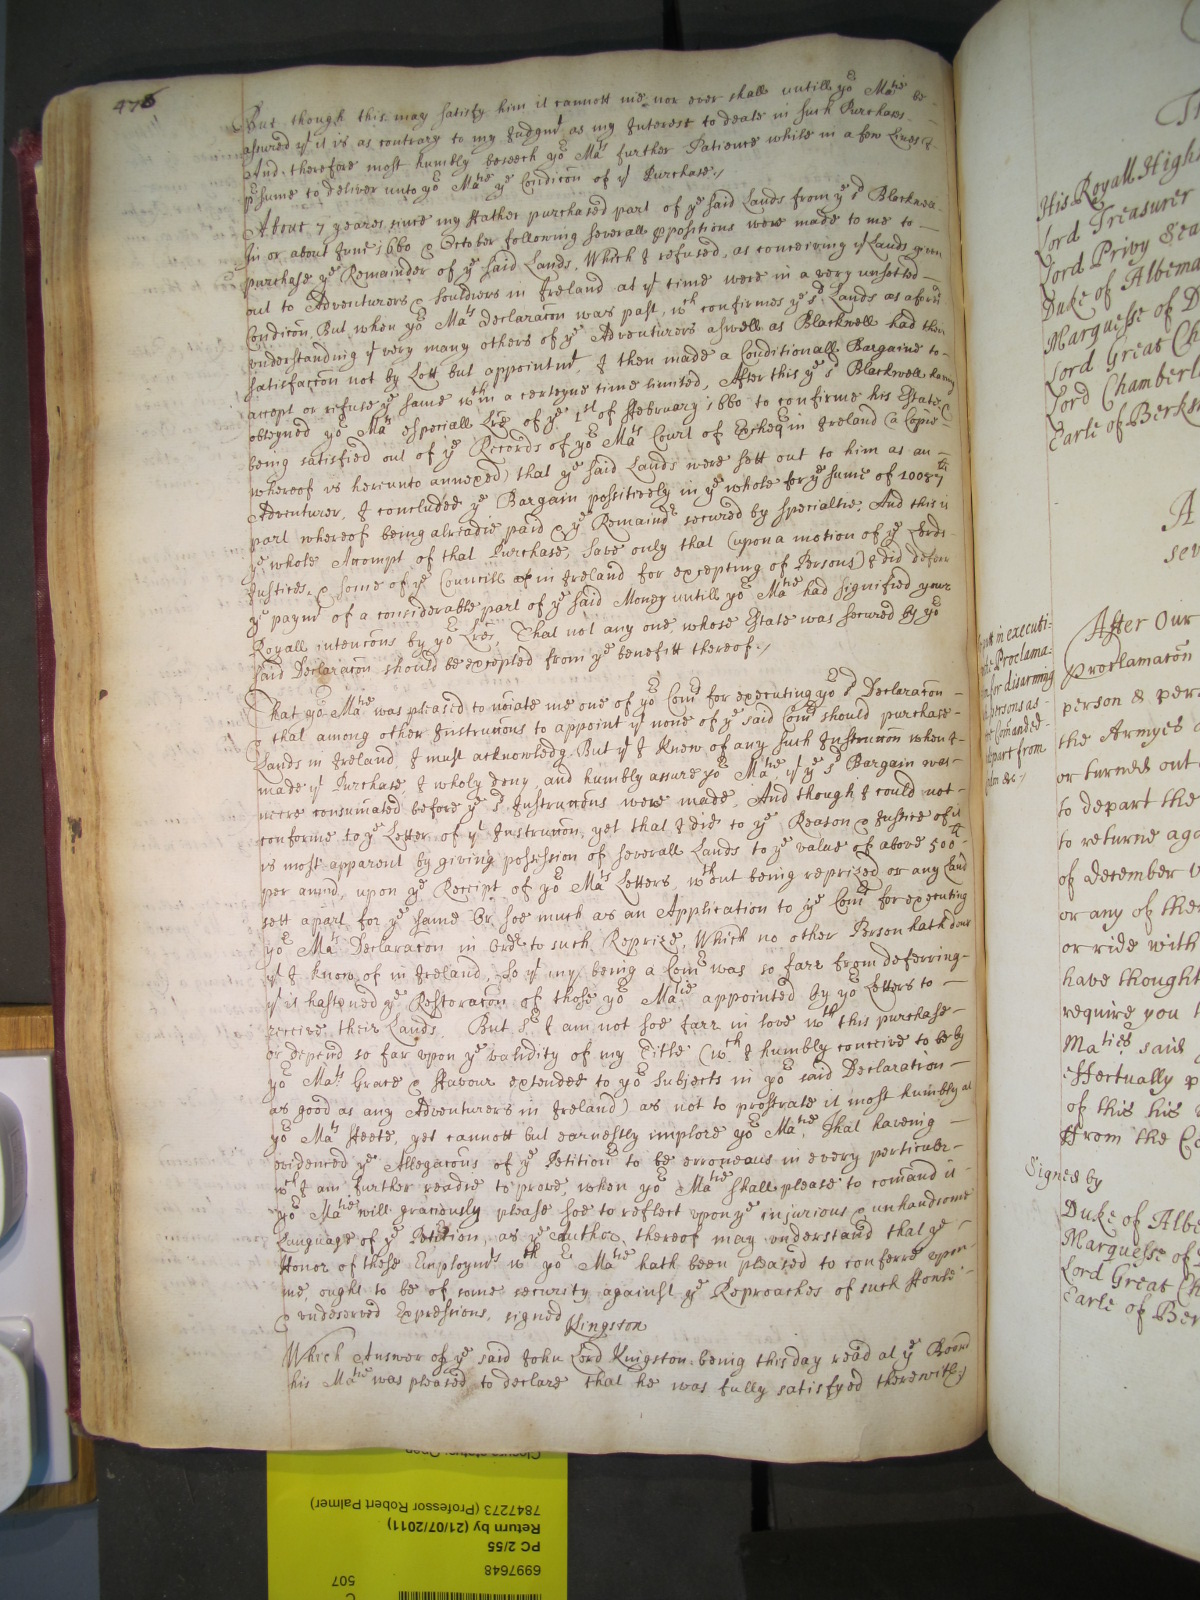 476
But though this may satisfy him it cannott me, nor ever shall untill yor Matie be
assured yt it is as contrary to my Judgmt as my Interest to deale in such Purchases.
And therefore most humbly beseech yor Mats further Patience while in a few Lines I
p'sume to deliver unto yor Matie ye Condicon of yt Purchase./
About 7 yeares since my ffather purchased part of ye said Lands from ye sd Blackwell
In or about June 1660 & October following severall propositions were made to me to
purchase ye Remainder of ye said Lands, Which I refused, as conceiving yt Lands given
out to Adventurers & Souldiers in Ireland at yt time were in a very unsetled
Condicon, But when yor Mats Declaracon was past, wch confirmes ye sd Lands as aforesd
understanding yt very many others of ye Adventurers aswell as Blackwell had their
satisfaccon not by Lott but appointmt, I then made a Conditionall Bargaine to
accept or refuse ye same wthin a certeyne time limited, After this ye sd Blackwell having
obteyned yor Mats especiall Lre of ye 1st of ffebruary 1660 to confirme his Estate, (
being satisfied out of ye Records of yor Mats Court of Excheqr in Ireland (a Copie
whereof is hereunto annexed) that ye said Lands were sett out to him as an
Adventurer, I concluded ye Bargain possitively in ye whole for ye sume of 10087li
part whereof being alreadie paid & ye Remaindr secured by specialtie; And this is
ye whole Accompt of that Purchase, save only that (upon a motion of ye Lords
Justices, & some of ye Councill in Ireland for excepting of Persons) I did deferr
ye paymt of a considerable part of ye said Money untill yor Matie had signified your
Royall intencons by yor Lres, That not any one, whose Estate was secured by yor
said Declaracon should be excepted from ye benefitt thereof./
That yor Matie was pleased to noiate me one of yor Comrs for executing yor sd Declaracon
that among other Instruccons to appoint yt none of ye said Comrs should purchase
Lands in Ireland, I must acknowledg. But yt I knew of any such Instruccon when I
made yt Purchase, I wholy deny, and humbly assure yor Matie, yt ye sd Bargain was
neere consumated before ye sd Instruccons were made, And though I could not
conforme to ye Letter of yt Instruccon, yet that I did to ye Reason & Justice of it
is most apparent by giving possession of severall Lands to ye value of above 500li
per annu, upon ye Receipt of yor Mats Letters, wthout being reprized or any Land
sett apart for ye same Or soe much as an Application to ye Comrs for executing
yor Mats Declaracon in Ordr to such Reprize, Which no other Person hath done
yt I know of in Ireland, So yt my being a Comr was so farr from deferring
yt it hastened ye Restoracon of those yor Matie appointed by yor Letters to
receive their Lands. But Sr I am not soe farr in love wth this purchase
or depend so far upon ye validity of my Title (wch I humbly conceive to be by
yor Mats Grace & ffavour extended to yor Subjects in yor said Declaration
as good as any Adventurers in Ireland) as not to prostrate it most humbly at
yor Mats ffeete, yet cannott but earnestly implore yor Matie, That haveing
evidenced ye Allegacons of ye Petitionr to be erroneous in every perticuler
wch I am further readie to prove, when yor Matie shall please to comand it
yor Matie will graciously please soe to reflect upon ye injurious & unhandsome
Language of ye Petition, as ye Author thereof may understand that ye
Honor of those Employmts wth yor Matie hath been pleased to conferre upon
me, ought to be of some security against ye Reproaches of such
& undeserved Expressions, signed Kingston
Which Answer of ye said John Lord Kingston being this day read at ye Board
his Matie was pleased to declare that he was fully satisfyed therewith./
His Royall High
Lord Treasurer
Lord Privy Sea
Duke of Albema
Marquesse of D
Lord Great Cha
Lord Chamberla
Earle of Berks
A
sev
putt in executi-
the Proclama-
for disarming
persons as
Comanded
depart from
London &c./
After Our
Proclamacon
person & pers
the Armyes
or turned out
to depart the
to returne aga
of December
or any of them
or ride with
have thought
require you
Maties said
effectually p
of this his
From the Co
Signed by
Duke of Albe
Marquesse of
Lord Great Ch
Earle of Ber
507
6997648
PC 2/55
Return by (21/07/2011)
7847273 (Professor Robert Palmer)
Closure status: Open